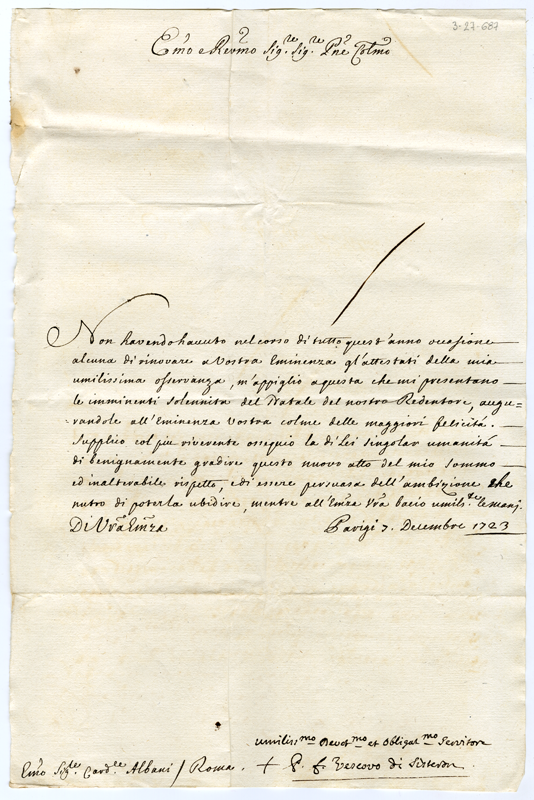 3-27-687
Em̃o e Revm̃o Sig.re Sig.re Pne Colmo
Non havendo havuto nel corso di tutto quest'anno occasione
alcuna di rinovare a Vostra Eminenza gl'attestati della mia
umilissima osservanza, m'appiglio a questa che mi presentano
le imminenti solennità del Natale del nostro Redentore, augu=
randole all'Eminenza Vostra colme delle maggiori felicità.
Supplico col piu riverente ossequio la di Lei singolar umanità
di benignamente gradire questo nuovo atto del mio sommo
ed inalterabile rispetto, e di essere persuasa dell'ambizione che
nutro di poterla ubidire, mentre all'Em̃za Vr̃a bacio umils.te le mani.
Di Vr̃a Em̃za Parigi 7. Decembre 1723
umilissmo Devotmo et Obligatmo Servitore
Em̃o Sig.re Card.le Albani / Roma. + P. f. Vescovo di Sisteron